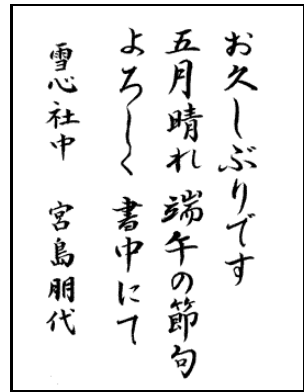 お久しぶりです
五月晴れ 端午の節句
よろしく 書中にて
雪心社中 宮島朋代